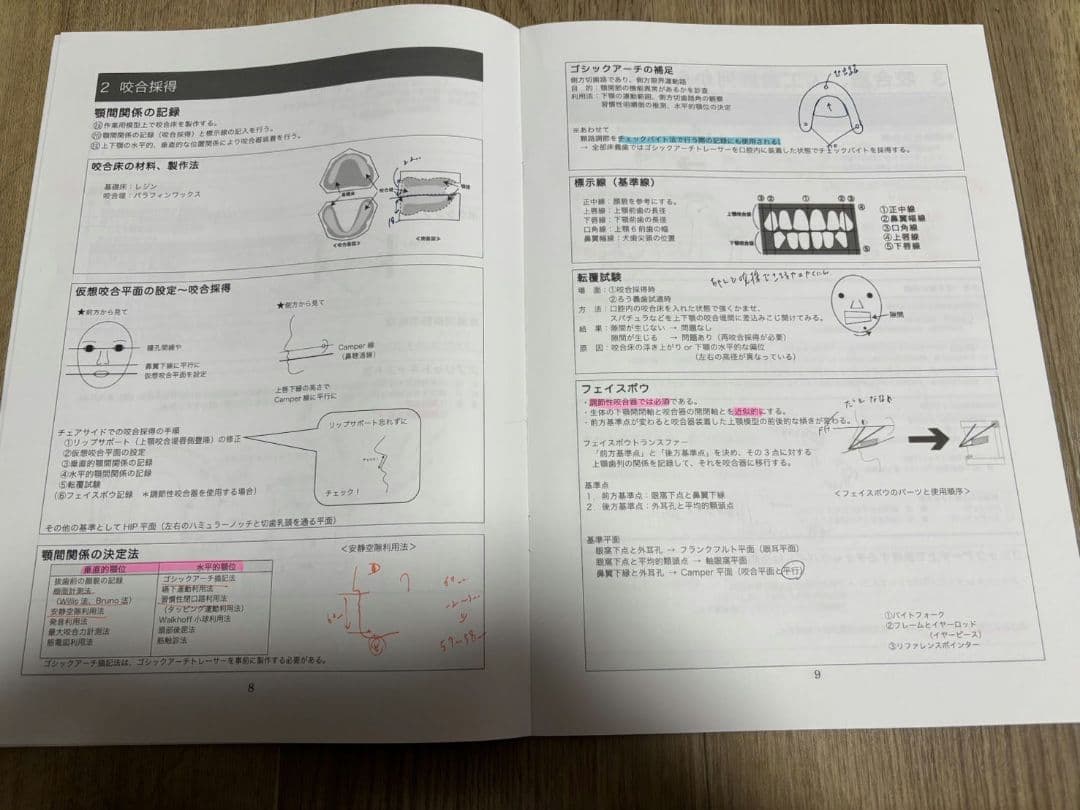 2 咬合採得
顎間関係の記録
作業用模型上で咬合床を製作する。
顎間関係の記録（咬合採得）と標示線の記入を行う。
上下顎の水平的、垂直的な位置関係により咬合器装着を行う。
咬合床の材料、製作法
基礎床：レジン
咬合堤：パラフィンワックス
基礎床
咬合堤
＜咬合面図＞
＜側面図＞
仮想咬合平面の設定～咬合採得
★前方から見て
★側方から見て
瞳孔間線や
鼻翼下線に平行に
仮想咬合平面を設定
Camper 線
（鼻聴道線）
上唇下縁の高さで
Camper 線に平行に
チェアサイドでの咬合採得の手順
①リップサポート（上顎咬合堤唇側豊隆）の修正
②仮想咬合平面の設定
③垂直的顎間関係の記録
④水平的顎間関係の記録
⑤転覆試験
（⑥フェイスボウ記録　＊調節性咬合器を使用する場合）
リップサポート忘れずに
チェック！
その他の基準として HIP 平面（左右のハミュラーノッチと切歯乳頭を通る平面）
顎間関係の決定法
垂直的顎位　水平的顎位
抜歯前の顔貌の記録　ゴシックアーチ描記法
顔面計測法　嚥下運動利用法
（Willis 法、Bruno 法）　習慣性閉口路利用法
安静空隙利用法　（タッピング運動利用法）
発音利用法　Walkhoff 小球利用法
最大咬合力計測法　頭部後屈法
筋電図利用法　筋触診法
ゴシックアーチ描記法は、ゴシックアーチトレーサーを事前に製作する必要がある。
＜安静空隙利用法＞
8
ゴシックアーチの補足
側方切歯路であり、側方限界運動路
目　的：顎関節の機能異常があるかを診査
利用法：下顎の運動範囲、側方切歯路角の観察
習慣性咀嚼側の推測、水平的顎位の決定
※あわせて
顆路調節をチェックバイト法で行う際の記録にも使用される！
→ 全部床義歯ではゴシックアーチトレーサーを口腔内に装着した状態でチェックバイトを採得する。
標示線（基準線）
正中線：顔貌を参考にする。
上唇線：上顎前歯の長径
下唇線：下顎前歯の長径
口角線：上顎6前歯の幅
鼻翼幅線：犬歯尖頭の位置
③ ② ① ② ③
④
⑤
上顎咬合堤
下顎咬合堤
①正中線
②鼻翼幅線
③口角線
④上唇線
⑤下唇線
転覆試験
場　面：①咬合採得時
②ろう義歯試適時
方　法：口腔内の咬合床を入れた状態で強くかませ、
スパチュラなどを上下顎の咬合堤間に差込みこじ開けてみる。
結　果：隙間が生じない → 問題なし
隙間が生じる　→ 問題あり（再咬合採得が必要）
原　因：咬合床の浮き上がり or 下顎の水平的な偏位
（左右の高径が異なっている）
隙間
フェイスボウ
・調節性咬合器では必須である。
・生体の下顎開閉軸と咬合器の開閉軸とを近似的にする。
・前方基準点が変わると咬合器装着した上顎模型の前後的な傾きが変わる。
フェイスボウトランスファー
「前方基準点」と「後方基準点」を決め、その3点に対する
上顎歯列の関係を記録して、それを咬合器に移行する。
＜フェイスボウのパーツと使用順序＞
基準点
1　前方基準点：眼窩下点と鼻翼下縁
2　後方基準点：外耳孔と平均的顆頭点
基準平面
眼窩下点と外耳孔 → フランクフルト平面（眼耳平面）
眼窩下点と平均的顆頭点 → 軸眼窩平面
鼻翼下縁と外耳孔 → Camper 平面（咬合平面と平行）
①バイトフォーク
②フレームとイヤーロッド
（イヤーピース）
③リファレンスポインター
9